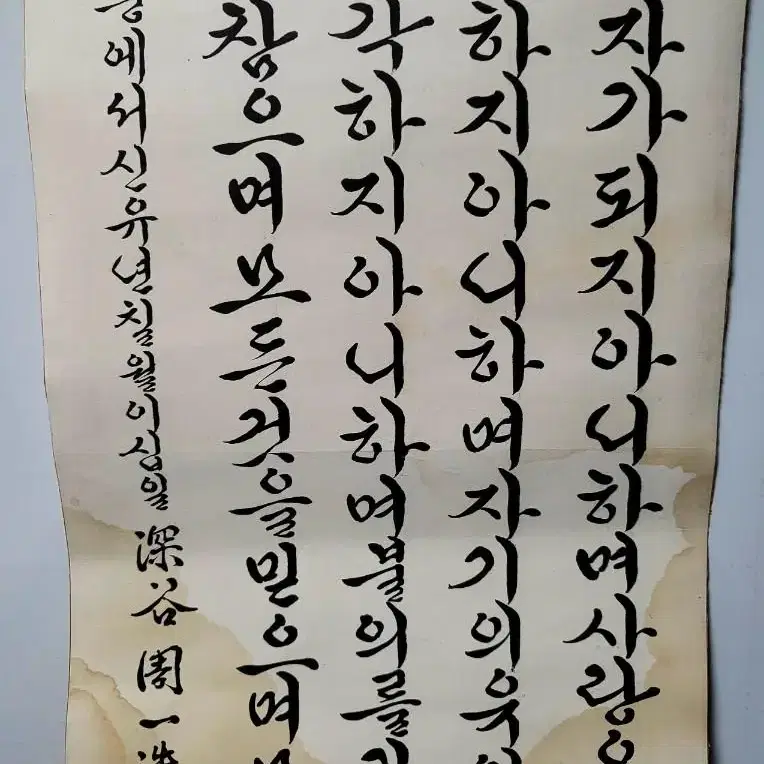 자가되지아니하며사랑
하지아니하며자기의유
각하지아니하며불의를
참으며모든것을믿으며
에서신유년칠월이십일 深谷 周一